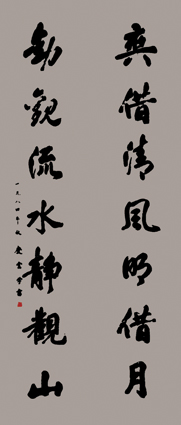 爽借清風明借月
動觀流水静觀山
一九八四年